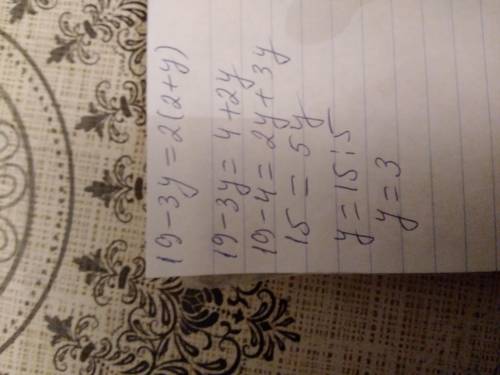 19-3y=2(2+y)
19-3y=4+2y
19-4=2y+3y
15=5y
y=15:5
y=3